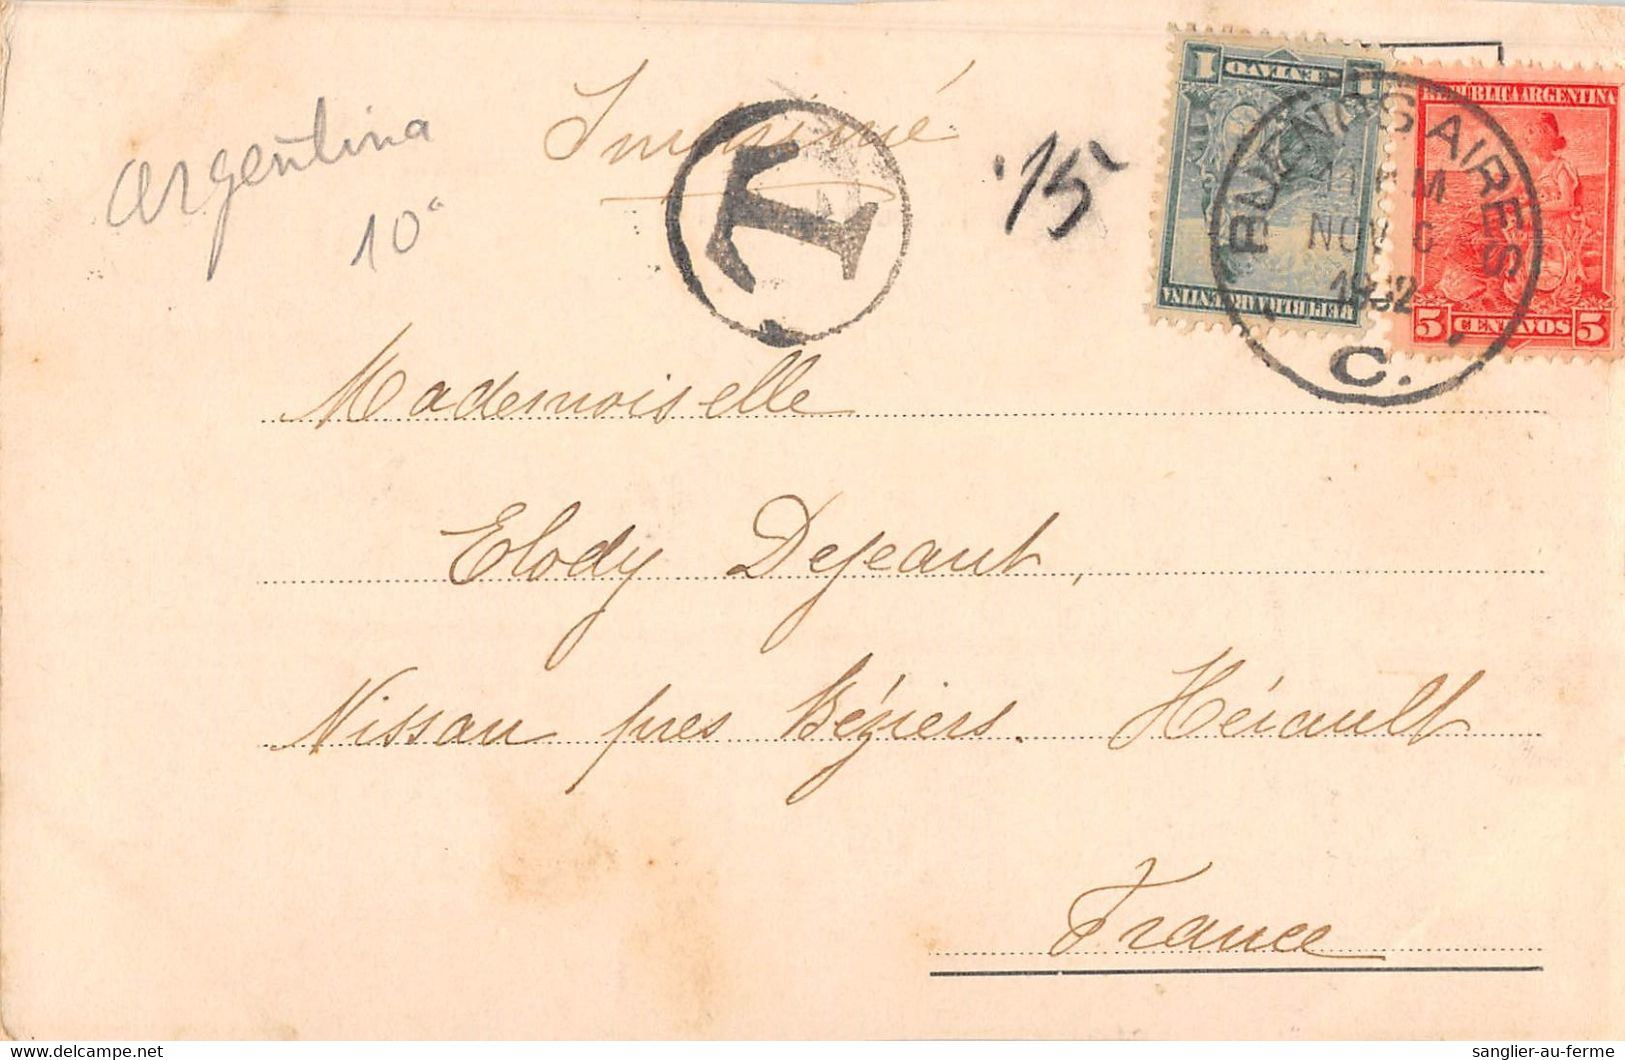 Imprimé
Argentina
10c
T
15
1 CENTAVO 1
REPUBLICA ARGENTINA
REPUBLICA ARGENTINA
5 CENTAVOS 5
BUENOS AIRES
11 AM
NOV 6
1902
C.
Mademoiselle
Elody Dejeant,
Nissan près Béziers. Hérault
France
sanglier-au-ferme